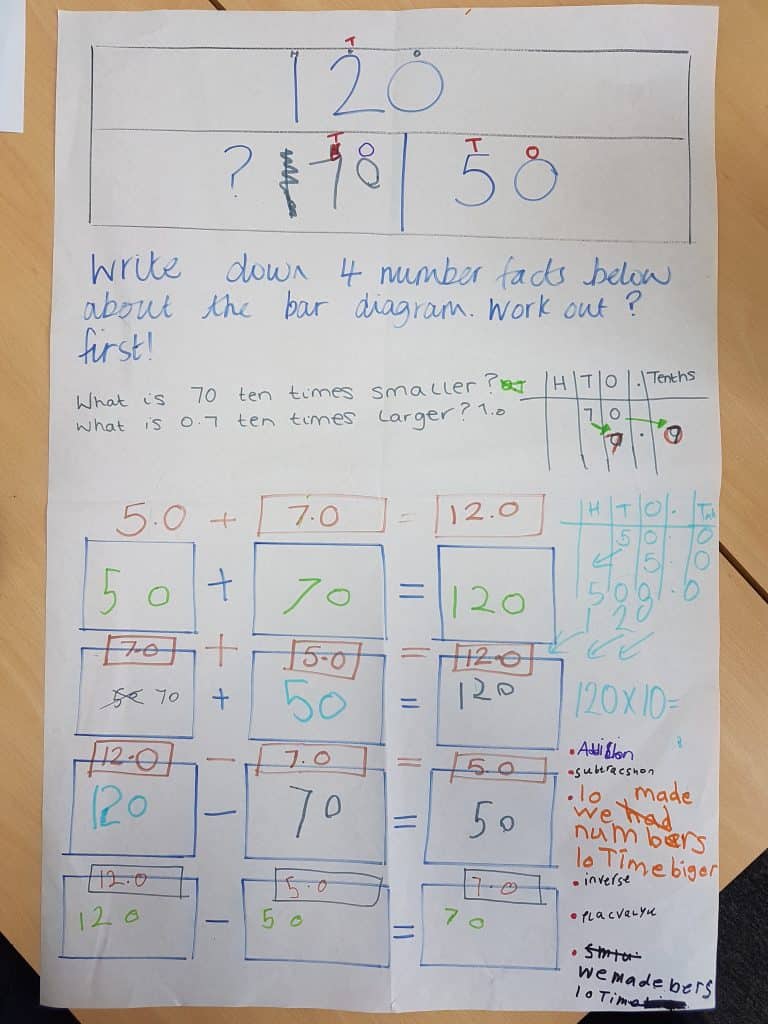 H T O
120
T O T O
? 70 50
Write down 4 number facts below
about the bar diagram. Work out ?
first!
What is 70 ten times smaller?
What is 0.7 ten times larger? 7.0
H T O . Tenths
7 0
.
5.0 + 7.0 = 12.0
H T O .
5 0 . 0
5 . 0
5 0 0 . 0
1 2 0
50 + 70 = 120
7.0 + 5.0 = 12.0
70 + 50 = 120
120 x 10 =
12.0 - 7.0 = 5.0
120 - 70 = 50
12.0 - 5.0 = 7.0
120 - 50 = 70
• Addition
• subtracshon
• 10 made
we had
numbers
10 Time biger
• inverse
• placvalyu
•
we made bers
10 Time